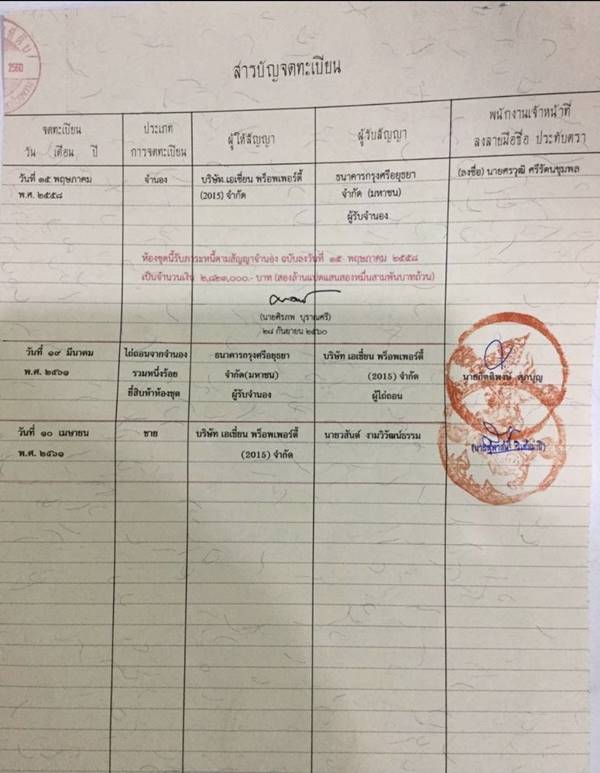 2560
สารบัญจดทะเบียน
จดทะเบียน
วัน เดือน ปี
ประเภท
การจดทะเบียน
ผู้ให้สัญญา
ผู้รับสัญญา
พนักงานเจ้าหน้าที่
ลงลายมือชื่อ ประทับตรา
วันที่ ๑๕ พฤษภาคม
พ.ศ. ๒๕๕๘
จำนอง
บริษัท เอเชี่ยน พร็อพเพอร์ตี้
(2015) จำกัด
ธนาคารกรุงศรีอยุธยา
จำกัด (มหาชน)
ผู้รับจำนอง
(ลงชื่อ) นายศรวุฒิ ศรีรัตนชุมพล
ห้องชุดนี้รับภาระหนี้ตามสัญญาจำนอง ฉบับลงวันที่ ๑๕ พฤษภาคม ๒๕๕๘
เป็นจำนวนเงิน ๒,๘๒๓,๐๐๐.- บาท (สองล้านแปดแสนสองหมื่นสามพันบาทถ้วน)
(นายศิรภพ บุราณศรี)
๒๘ กันยายน ๒๕๖๐
วันที่ ๑๙ มีนาคม
พ.ศ. ๒๕๖๑
ไถ่ถอนจากจำนอง
รวมหนึ่งร้อย
ยี่สิบห้าห้องชุด
ธนาคารกรุงศรีอยุธยา
จำกัด(มหาชน)
ผู้รับจำนอง
บริษัท เอเชี่ยน พร็อพเพอร์ตี้
(2015) จำกัด
ผู้ไถ่ถอน
วันที่ ๑๐ เมษายน
พ.ศ. ๒๕๖๑
ขาย
บริษัท เอเชี่ยน พร็อพเพอร์ตี้
(2015) จำกัด
นายวสันต์ งามวิวัฒน์ธรรม